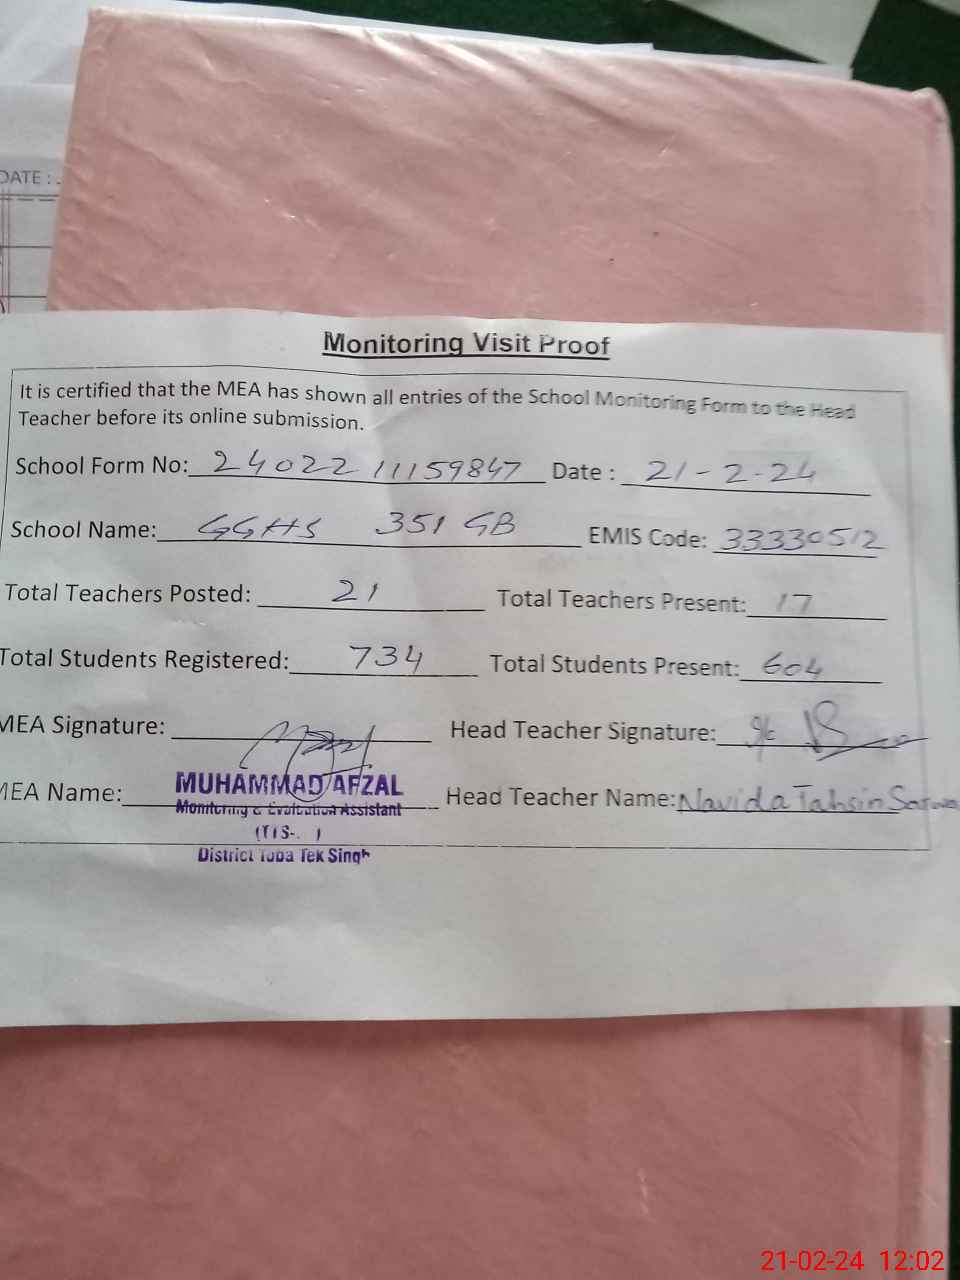 DATE :
Monitoring Visit Proof
It is certified that the MEA has shown all entries of the School Monitoring Form to the Head
Teacher before its online submission.
School Form No: 24022 11159847 Date : 21-2-24
School Name: GGHS 351 GB EMIS Code: 33330512
Total Teachers Posted: 21 Total Teachers Present: 17
Total Students Registered: 734 Total Students Present: 604
MEA Signature: Head Teacher Signature:
MEA Name: MUHAMMAD AFZAL Head Teacher Name: Navida Tahsin
Monitoring & Evaluation Assistant
District Toba Tek Singh
21-02-24 12:02